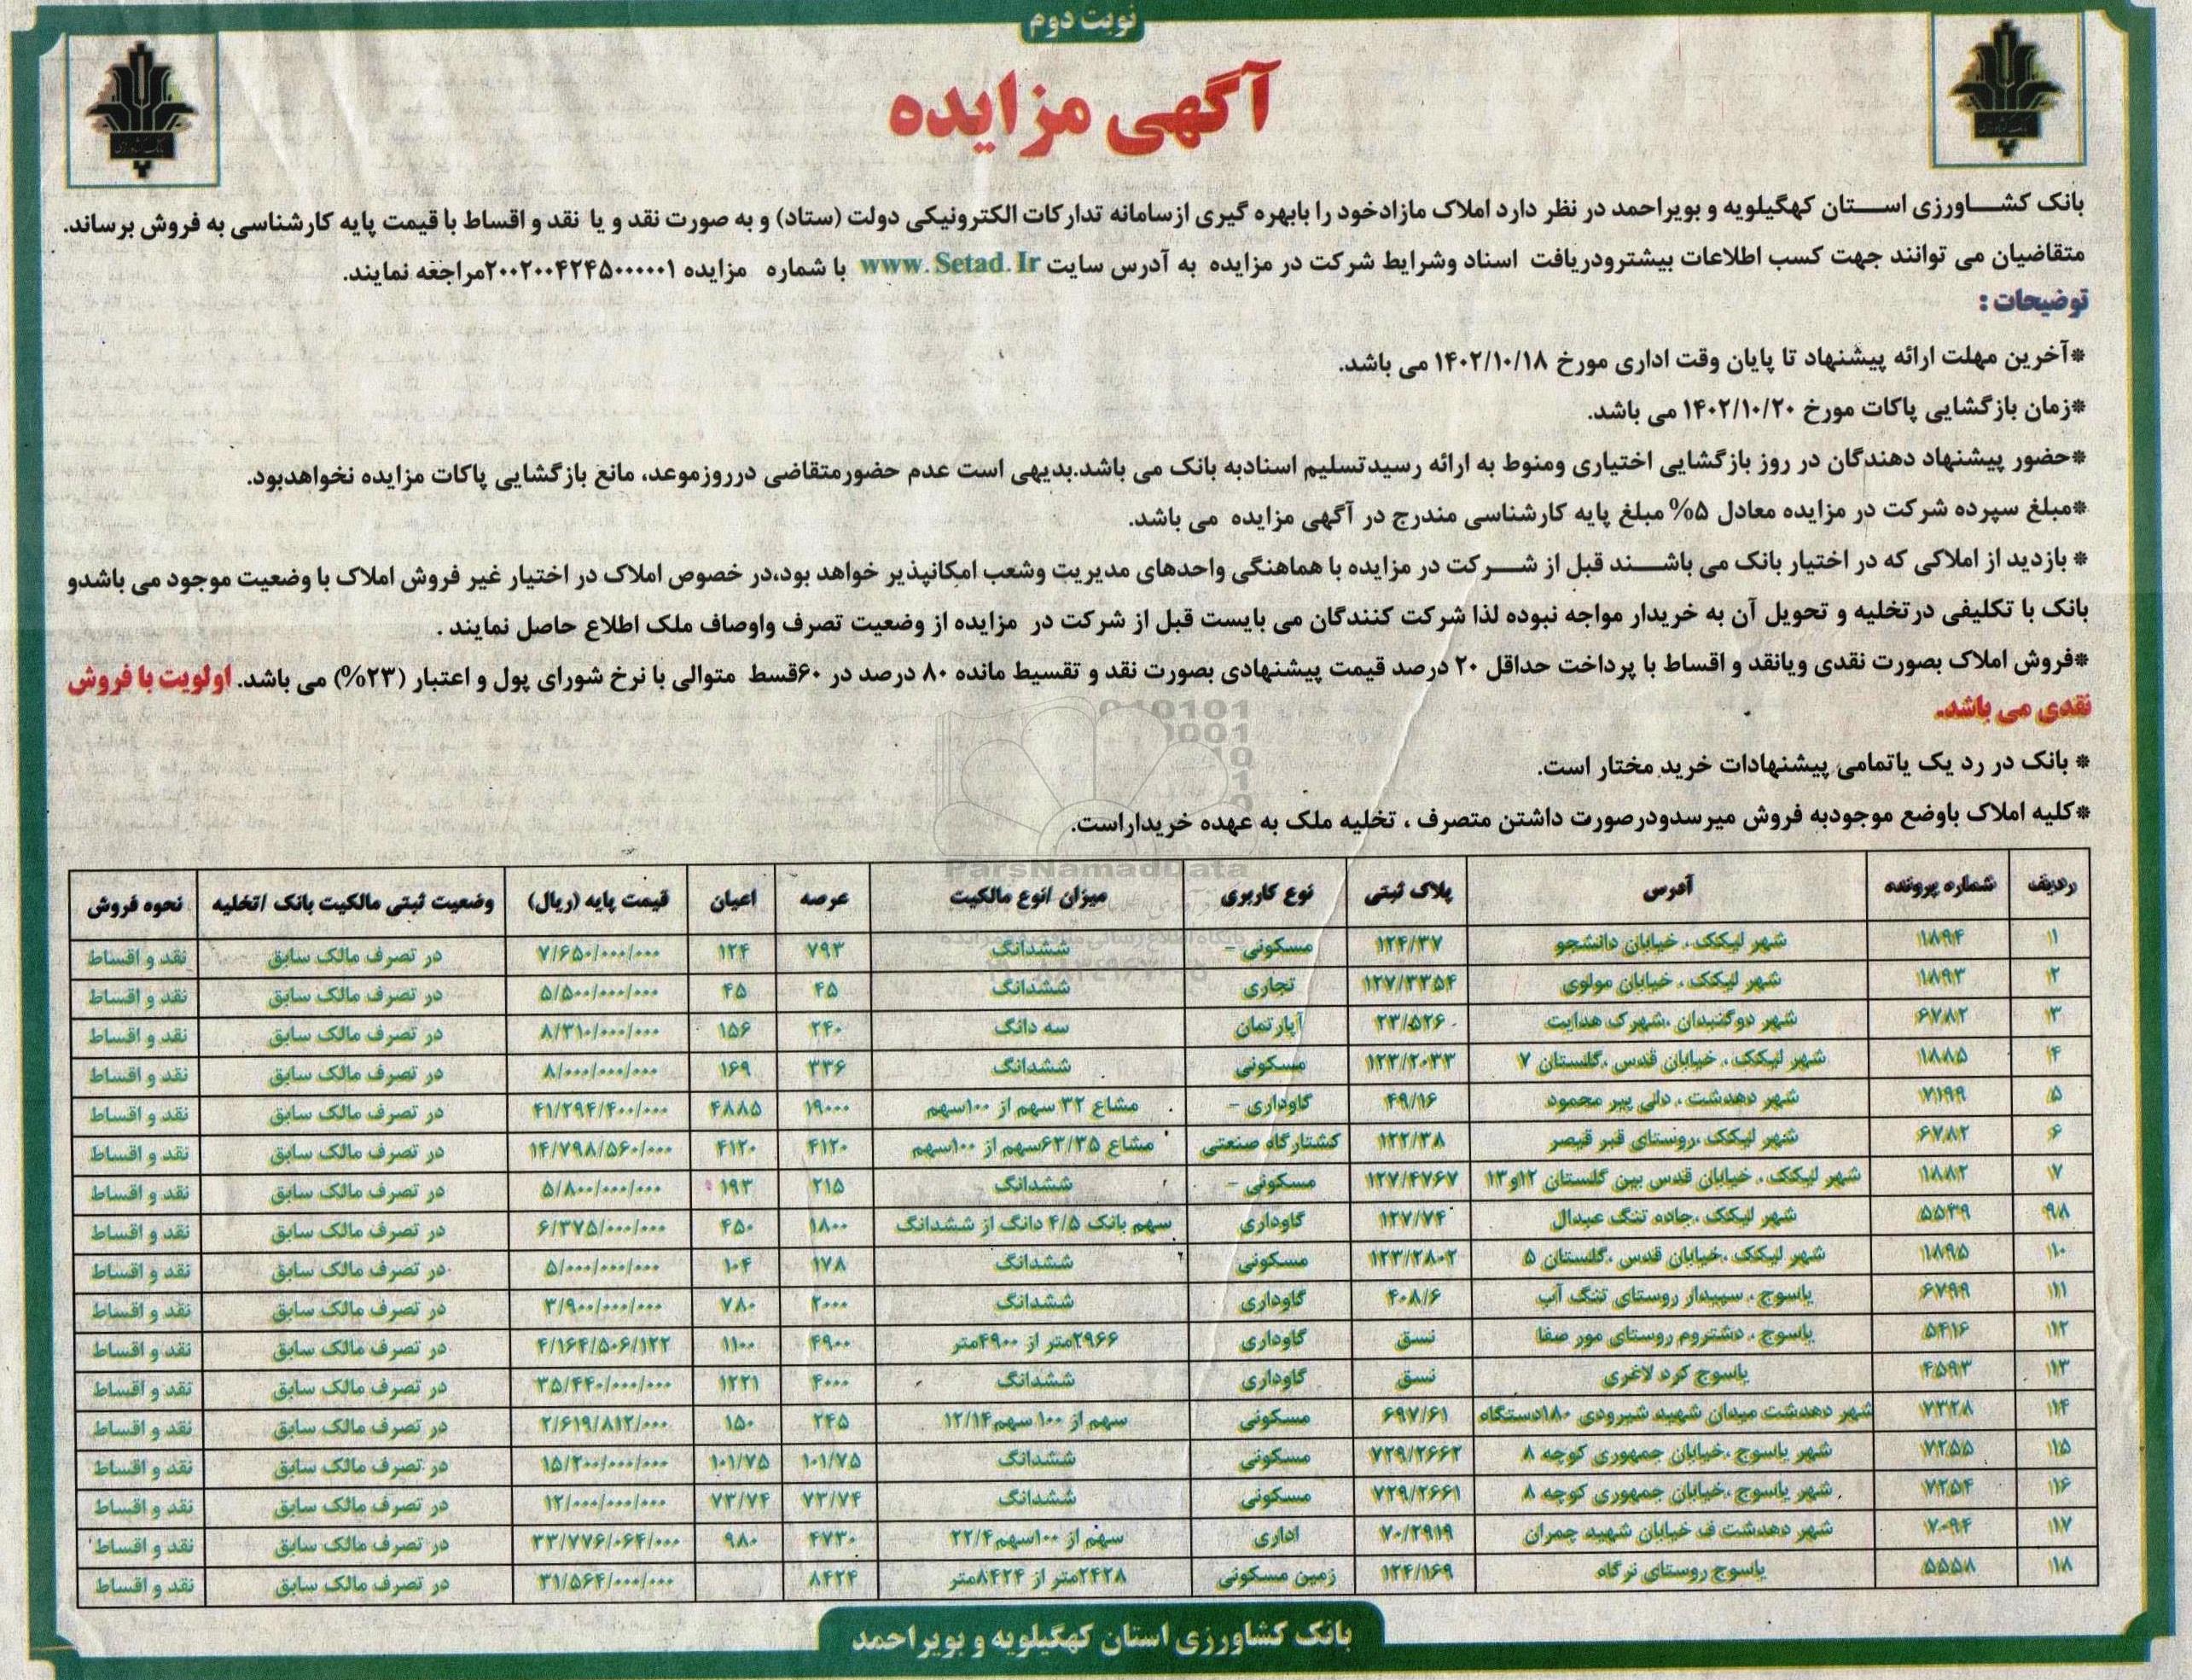 نوبت دوم
آگهی مزایده
بانک کشاورزی
بانک کشاورزی
بانک کشـــاورزی اســـتان کهگیلویه و بویراحمد در نظر دارد املاک مازادخود را بابهره گیری ازسامانه تدارکات الکترونیکی دولت (ستاد) و به صورت نقد و یا نقد و اقساط با قیمت پایه کارشناسی به فروش برساند.
متقاضیان می توانند جهت کسب اطلاعات بیشترودریافت اسناد وشرایط شرکت در مزایده به آدرس سایت www.Setad.Ir با شماره مزایده ۲۰۰۲۰۰۴۲۴۵۰۰۰۰۰۱مراجعه نمایند.
توضیحات :
*آخرین مهلت ارائه پیشنهاد تا پایان وقت اداری مورخ ۱۴۰۲/۱۰/۱۸ می باشد.
*زمان بازگشایی پاکات مورخ ۱۴۰۲/۱۰/۲۰ می باشد.
*حضور پیشنهاد دهندگان در روز بازگشایی اختیاری ومنوط به ارائه رسیدتسلیم اسنادبه بانک می باشد.بدیهی است عدم حضورمتقاضی درروزموعد، مانع بازگشایی پاکات مزایده نخواهدبود.
*مبلغ سپرده شرکت در مزایده معادل ۵% مبلغ پایه کارشناسی مندرج در آگهی مزایده می باشد.
* بازدید از املاکی که در اختیار بانک می باشـــند قبل از شـــرکت در مزایده با هماهنگی واحدهای مدیریت وشعب امکانپذیر خواهد بود،در خصوص املاک در اختیار غیر فروش املاک با وضعیت موجود می باشدو
بانک با تکلیفی درتخلیه و تحویل آن به خریدار مواجه نبوده لذا شرکت کنندگان می بایست قبل از شرکت در مزایده از وضعیت تصرف واوصاف ملک اطلاع حاصل نمایند .
*فروش املاک بصورت نقدی ویانقد و اقساط با پرداخت حداقل ۲۰ درصد قیمت پیشنهادی بصورت نقد و تقسیط مانده ۸۰ درصد در ۶۰قسط متوالی با نرخ شورای پول و اعتبار (۲۳%) می باشد. اولویت با فروش
نقدی می باشد.
* بانک در رد یک یاتمامی پیشنهادات خرید مختار است.
*کلیه املاک باوضع موجودبه فروش میرسدودرصورت داشتن متصرف ، تخلیه ملک به عهده خریداراست.
ParsNamadData
ردیف شماره پرونده آدرس پلاک ثبتی نوع کاربری میزان انوع مالکیت عرصه اعیان قیمت پایه (ریال) وضعیت ثبتی مالکیت بانک /تخلیه نحوه فروش
۱ ۱۸۹۴ شهر لیکک ، خیابان دانشجو ۱۲۴/۳۷ مسکونی – ششدانگ ۷۹۳ ۱۲۴ ۷/۶۵۰/۰۰۰/۰۰۰ در تصرف مالک سابق نقد و اقساط
۲ ۱۸۹۳ شهر لیکک ، خیابان مولوی ۱۲۷/۳۳۵۴ تجاری ششدانگ ۴۵ ۴۵ ۵/۵۰۰/۰۰۰/۰۰۰ در تصرف مالک سابق نقد و اقساط
۳ ۶۷۸۲ شهر دوگنبدان ،شهرک هدایت ۲۳/۵۲۶ آپارتمان سه دانگ ۲۴۰ ۱۵۶ ۸/۳۱۰/۰۰۰/۰۰۰ در تصرف مالک سابق نقد و اقساط
۴ ۱۸۸۵ شهر لیکک ، خیابان قدس ،گلستان ۷ ۱۲۳/۲۰۳۳ مسکونی ششدانگ ۳۳۶ ۱۶۹ ۸/۰۰۰/۰۰۰/۰۰۰ در تصرف مالک سابق نقد و اقساط
۵ ۷۱۹۹ شهر دهدشت ، دلی پیر محمود ۴۹/۱۶ گاوداری – مشاع ۳۲ سهم از ۱۰۰سهم ۱۹۰۰۰ ۴۸۸۵ ۴۱/۲۹۴/۴۰۰/۰۰۰ در تصرف مالک سابق نقد و اقساط
۶ ۶۷۸۲ شهر لیکک ،روستای قبر قیصر ۱۲۲/۳۸ کشتارگاه صنعتی مشاع ۶۳/۳۵سهم از ۱۰۰سهم ۴۱۲۰ ۴۱۲۰ ۱۴/۷۹۸/۵۶۰/۰۰۰ در تصرف مالک سابق نقد و اقساط
۷ ۱۸۸۲ شهر لیکک ، خیابان قدس بین گلستان ۱۲و۱۳ ۱۲۷/۴۷۶۷ مسکونی – ششدانگ ۲۱۵ ۱۹۳ ۵/۸۰۰/۰۰۰/۰۰۰ در تصرف مالک سابق نقد و اقساط
۹،۸ ۵۵۳۹ شهر لیکک ،جاده تنگ عبدال ۱۲۷/۷۴ گاوداری سهم بانک ۴/۵ دانگ از ششدانگ ۱۸۰۰ ۴۵۰ ۶/۳۷۵/۰۰۰/۰۰۰ در تصرف مالک سابق نقد و اقساط
۱۰ ۱۸۹۵ شهر لیکک ،خیابان قدس ،گلستان ۵ ۱۲۳/۲۸۰۲ مسکونی ششدانگ ۱۷۸ ۱۰۴ ۵/۰۰۰/۰۰۰/۰۰۰ در تصرف مالک سابق نقد و اقساط
۱۱ ۶۷۹۹ یاسوج ، سپیدار روستای تنگ آب ۴۰۸/۶ گاوداری ششدانگ ۲۰۰۰ ۷۸۰ ۳/۹۰۰/۰۰۰/۰۰۰ در تصرف مالک سابق نقد و اقساط
۱۲ ۵۴۱۶ یاسوج ، دشتروم روستای مور صفا نسق گاوداری ۲۹۶۶متر از ۴۹۰۰متر ۴۹۰۰ ۱۱۰۰ ۴/۱۶۴/۵۰۶/۱۲۲ در تصرف مالک سابق نقد و اقساط
۱۳ ۴۵۹۳ یاسوج کرد لاغری نسق گاوداری ششدانگ ۴۰۰۰ ۱۲۲۱ ۳۵/۴۴۰/۰۰۰/۰۰۰ در تصرف مالک سابق نقد و اقساط
۱۴ ۷۳۲۸ شهر دهدشت میدان شهید شیرودی ۱۸۰دستگاه ۶۹۷/۶۱ مسکونی سهم از ۱۰۰ سهم۱۲/۱۴ ۲۴۵ ۱۵۰ ۲/۶۱۹/۸۱۲/۰۰۰ در تصرف مالک سابق نقد و اقساط
۱۵ ۷۲۵۵ شهر یاسوج ،خیابان جمهوری کوچه ۸ ۷۲۹/۲۶۶۲ مسکونی ششدانگ ۱۰۱/۷۵ ۱۰۱/۷۵ ۱۵/۲۰۰/۰۰۰/۰۰۰ در تصرف مالک سابق نقد و اقساط
۱۶ ۷۲۵۴ شهر یاسوج ،خیابان جمهوری کوچه ۸ ۷۲۹/۲۶۶۱ مسکونی ششدانگ ۷۳/۷۴ ۷۳/۷۴ ۱۲/۰۰۰/۰۰۰/۰۰۰ در تصرف مالک سابق نقد و اقساط
۱۷ ۷۰۹۴ شهر دهدشت ف خیابان شهید چمران ۷۰/۲۹۱۹ اداری سهم از ۱۰۰سهم۲۲/۴ ۴۷۳۰ ۹۸۰ ۳۳/۷۷۶/۰۶۴/۰۰۰ در تصرف مالک سابق نقد و اقساط
۱۸ ۵۵۵۸ یاسوج روستای نرگاه ۱۲۴/۱۶۹ زمین مسکونی ۲۴۲۸متر از ۸۴۲۴متر ۸۴۲۴ ۳۱/۵۶۴/۰۰۰/۰۰۰ در تصرف مالک سابق نقد و اقساط
بانک کشاورزی استان کهگیلویه و بویراحمد